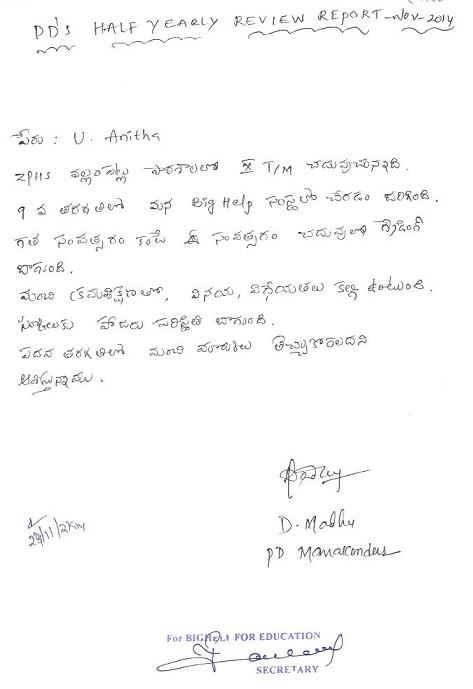 PD'S HALF YEARLY REVIEW REPORT-Nov-2014
పేరు : U. Anitha
ZPHS వల్లంపట్ల పాఠశాలలో X T/M చదువుచున్నది.
9 వ తరగతిలో మన Big Help సంస్థలో చేరడం జరిగింది.
గత సంవత్సరం కంటే ఈ సంవత్సరం చదువులో గ్రేడింగ్
బాగుంది.
మంచి క్రమశిక్షణతో, వినయ, విధేయతలు కల్గి ఉంటుంది.
స్కూలుకు హాజరు పరిస్థితి బాగుంది.
పదవ తరగతిలో మంచి మార్కులు తెచ్చుకోగలదని
ఆశిస్తున్నాము.
D. Madhu
PD Manakondur
24/11/2K14
For BIGHELP FOR EDUCATION
SECRETARY